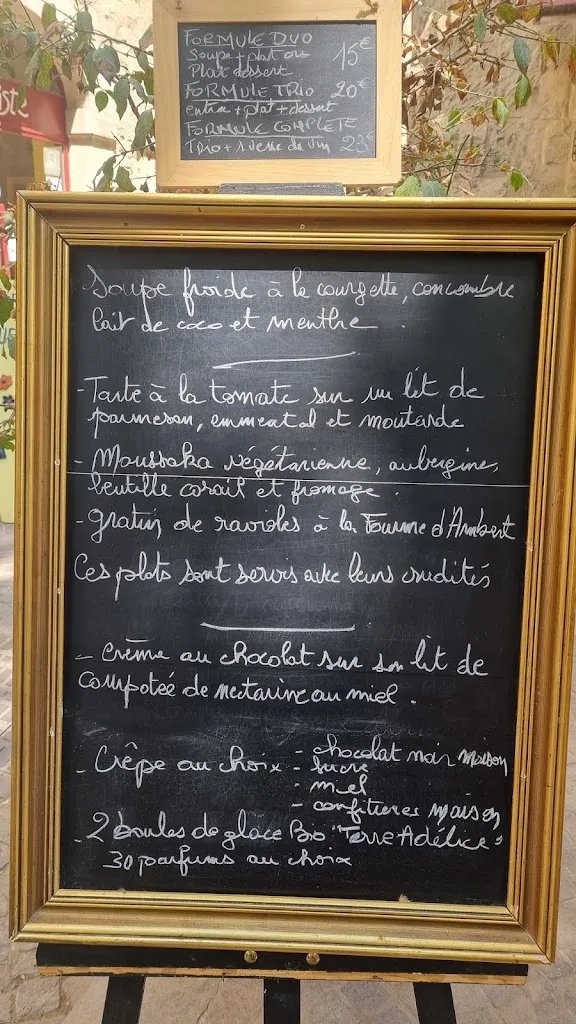 iste
FORMULE DUO
Soupe + plat ou 15€
Plat dessert
FORMULE TRIO 20€
entrée + plat + dessert
FORMULE COMPLETE
Trio + 1 verre de vin 23€
Soupe froide à la courgette, concombre
lait de coco et menthe.
- Tarte à la tomate sur un lit de
parmesan, emmental et moutarde
- Moussaka végétarienne, aubergines,
lentille corail et fromage.
- gratin de ravioles à la Fourme d'Ambert
Ces plats sont servis avec leurs crudités
- crème au chocolat sur son lit de
compotée de nectarine au miel.
- Crêpe au choix - chocolat noir maison
- sucre
- miel
- confitures maison
- 2 boules de glace Bio "Terre Adélice"
30 parfums au choix